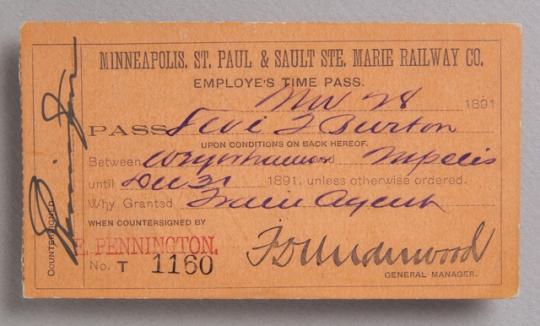 MINNEAPOLIS, ST. PAUL & SAULT STE. MARIE RAILWAY CO.
EMPLOYE'S TIME PASS.
Nov 28 1891
PASS Levi L Burton
UPON CONDITIONS ON BACK HEREOF.
Between and Mpolis
until Dec 31 1891, unless otherwise ordered.
Why Granted Train Agent
WHEN COUNTERSIGNED BY
E. PENNINGTON.
No. T 1160
F D Underwood
GENERAL MANAGER.
COUNTERSIGNED
Pennington